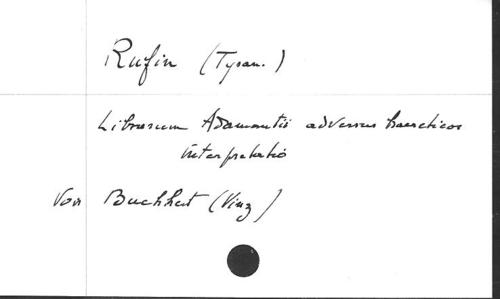 Rufin (Tyran.)
Librorum Adamantii adversus haereticos
interpretatio
Voir Buchheit (Vinz)